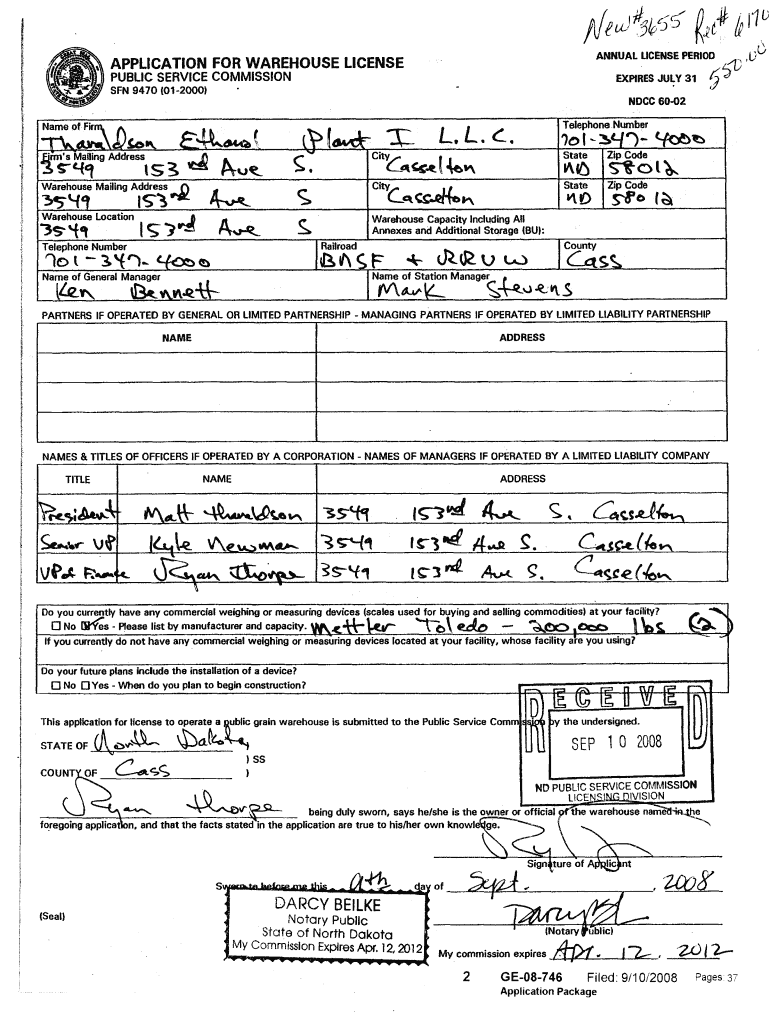 New # 3655 Rec# 6170
550.00
APPLICATION FOR WAREHOUSE LICENSE
PUBLIC SERVICE COMMISSION
SFN 9470 (01-2000)
ANNUAL LICENSE PERIOD
EXPIRES JULY 31
NDCC 60-02
Name of Firm Telephone Number
Tharaldson Ethanol Plant I L.L.C. 701-347-4000
Firm's Mailing Address City State Zip Code
3549 153rd Ave S. Casselton ND 58012
Warehouse Mailing Address City State Zip Code
3549 153rd Ave S Casselton ND 58012
Warehouse Location Warehouse Capacity Including All
3549 153rd Ave S Annexes and Additional Storage (BU):
Telephone Number Railroad County
701-347-4000 BNSF + RRVW Cass
Name of General Manager Name of Station Manager
Ken Bennett Mark Stevens
PARTNERS IF OPERATED BY GENERAL OR LIMITED PARTNERSHIP - MANAGING PARTNERS IF OPERATED BY LIMITED LIABILITY PARTNERSHIP
NAME ADDRESS
NAMES & TITLES OF OFFICERS IF OPERATED BY A CORPORATION - NAMES OF MANAGERS IF OPERATED BY A LIMITED LIABILITY COMPANY
TITLE NAME ADDRESS
President Matt tharaldson 3549 153rd Ave S. Casselton
Senior VP Kyle Newman 3549 153rd Ave S. Casselton
VP of Finance Ryan Thorpe 3549 153rd Ave S. Casselton
Do you currently have any commercial weighing or measuring devices (scales used for buying and selling commodities) at your facility?
No Yes - Please list by manufacturer and capacity. Mettler Toledo - 200,000 lbs (2)
If you currently do not have any commercial weighing or measuring devices located at your facility, whose facility are you using?
Do your future plans include the installation of a device?
No Yes - When do you plan to begin construction?
RECEIVED
SEP 10 2008
ND PUBLIC SERVICE COMMISSION
LICENSING DIVISION
This application for license to operate a public grain warehouse is submitted to the Public Service Commission by the undersigned.
STATE OF North Dakota )
) SS
COUNTY OF Cass )
Ryan thorpe being duly sworn, says he/she is the owner or official of the warehouse named in the
foregoing application, and that the facts stated in the application are true to his/her own knowledge.
Signature of Applicant
Sworn to before me this 9th day of Sept. , 2008
DARCY BEILKE
Notary Public
State of North Dakota
My Commission Expires Apr. 12, 2012
(Seal)
(Notary Public)
My commission expires Apr. 12, 2012
2 GE-08-746 Filed: 9/10/2008 Pages: 37
Application Package